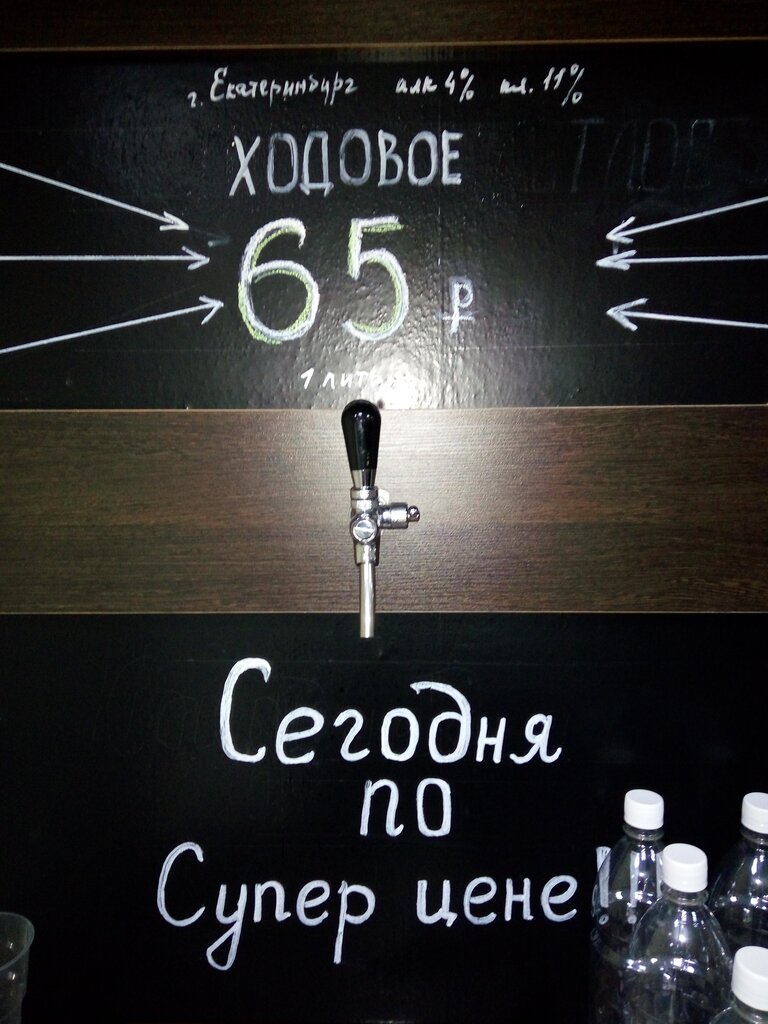 г. Екатеринбург алк 4% пл. 11%
ХОДОВОЕ
65 ₽
1
Сегодня
по
Супер цене!